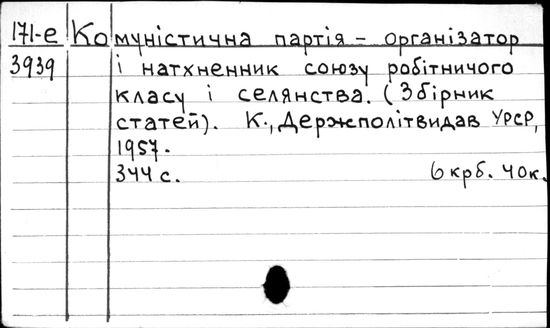 171-е Комуністична партія - організатор
3939 і натхненник союзу робітничого
класу і селянства. (Збірник
статей). К., Держполітвидав УРСР,
1957.
344 с. 6 крб. 40к.